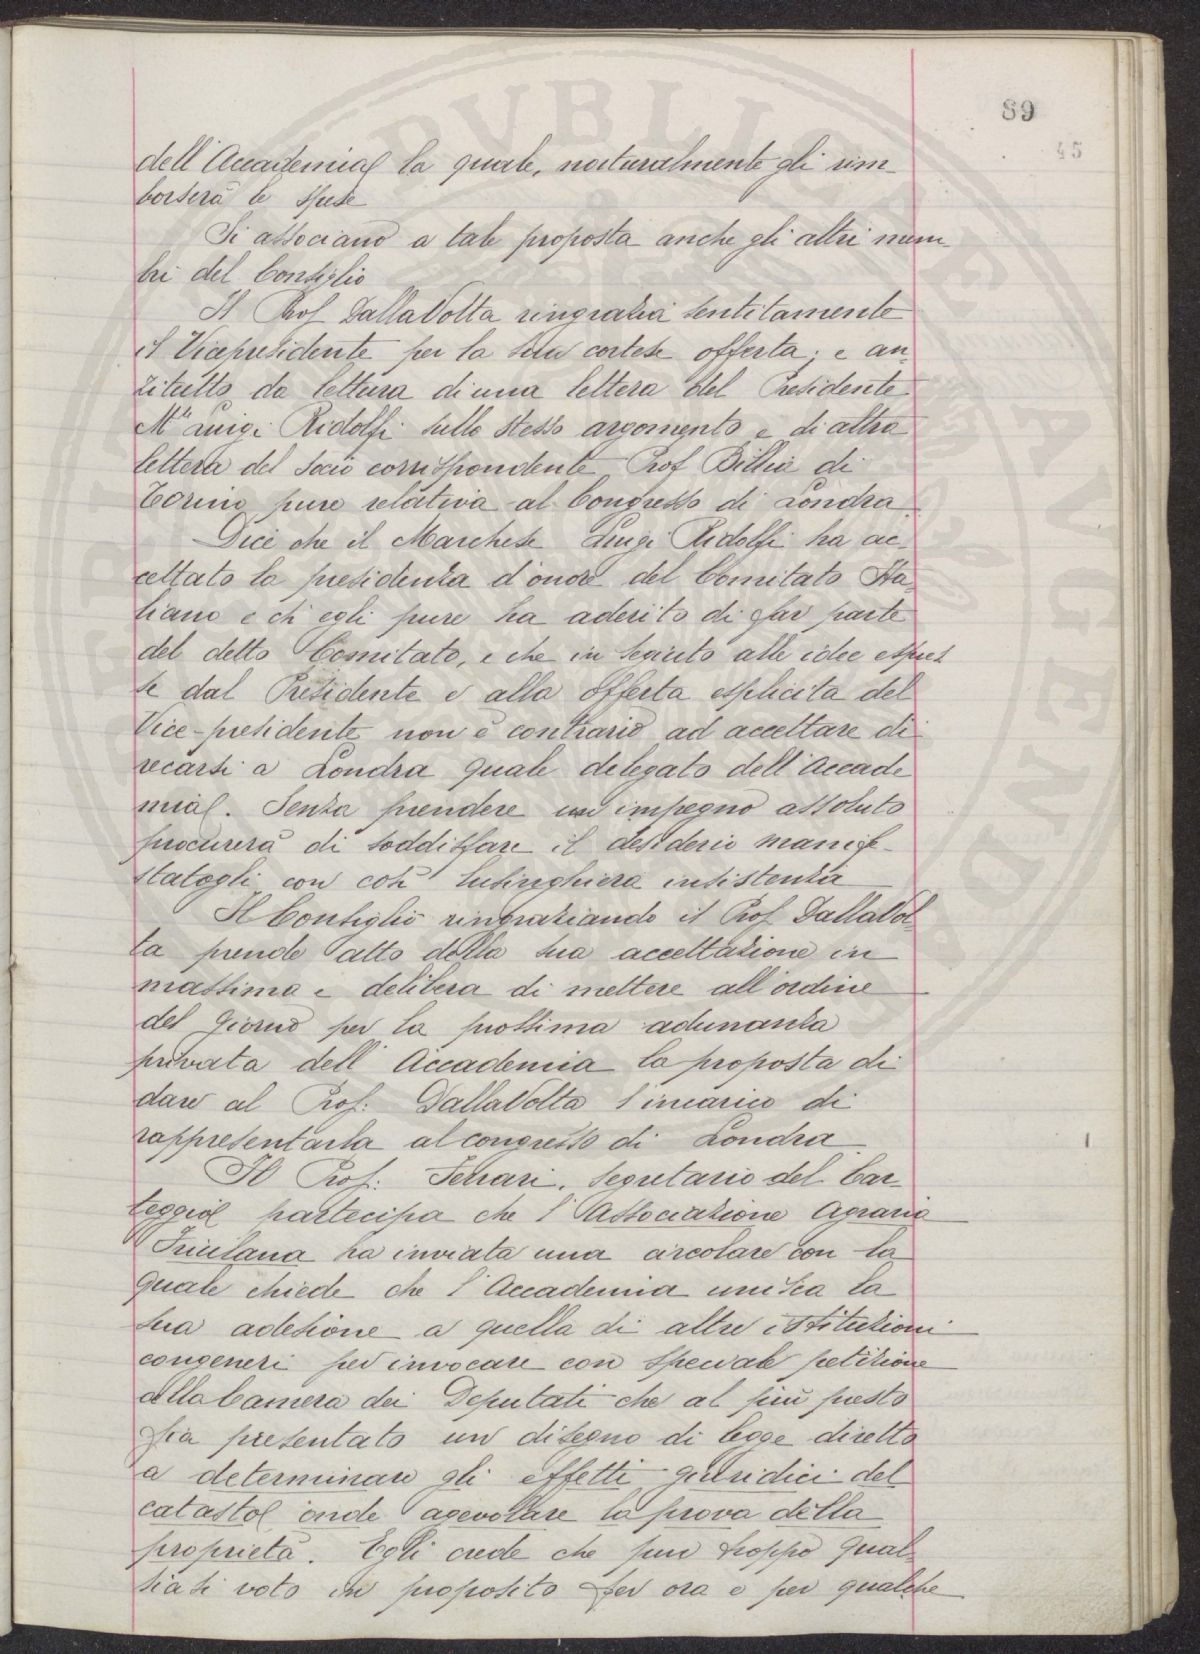 89
45
dell'Accademia la quale, naturalmente gli rim-
borserà le spese
Si associano a tale proposta anche gli altri mem
bri del Consiglio
Il Prof DallaVolta ringrazia sentitamente
il Vicepresidente per la sua cortese offerta; e an-
zitutto da lettura di una lettera del Presidente
Mse Luigi Ridolfi sullo stesso argomento e di altra
lettera del socio corrispondente Prof Billia di
Torino pure relativa al Congresso di Londra.
Dice che il Marchese Luigi Ridolfi ha ac-
cettato la presidenza d'onore del Comitato Ita-
liano e ch'egli pure ha aderito di far parte
del detto Comitato, e che in seguito alle idee espres
se dal Presidente e alla offerta esplicita del
Vice-presidente non è contrario ad accettare di
recarsi a Londra quale delegato dell'Accade
mia. Senza prendere un impegno assoluto
procurerà di soddisfare il desiderio manife-
statogli con così lusinghiera insistenza
Il Consiglio ringraziando il Prof DallaVol-
ta prende atto della sua accettazione in
massima e delibera di mettere all'ordine
del giorno per la prossima adunanza
privata dell'Accademia la proposta di
dare al Prof: DallaVolta l'incarico di
rappresentarla al congresso di Londra.
Il Prof: Ferrari, segretario del Car-
teggio partecipa che l'Associazione Agraria
Friulana ha inviata una circolare con la
quale chiede che l'Accademia unisca la
sua adesione a quella di altre istituzioni
congeneri per invocare con speciale petizione
alla Camera dei Deputati che al più presto
sia presentato un disegno di legge diretto
a determinare gli effetti giuridici del
catasto onde agevolare la prova della
proprietà. Egli crede che pur troppo qual-
siasi voto in proposito per ora e per qualche